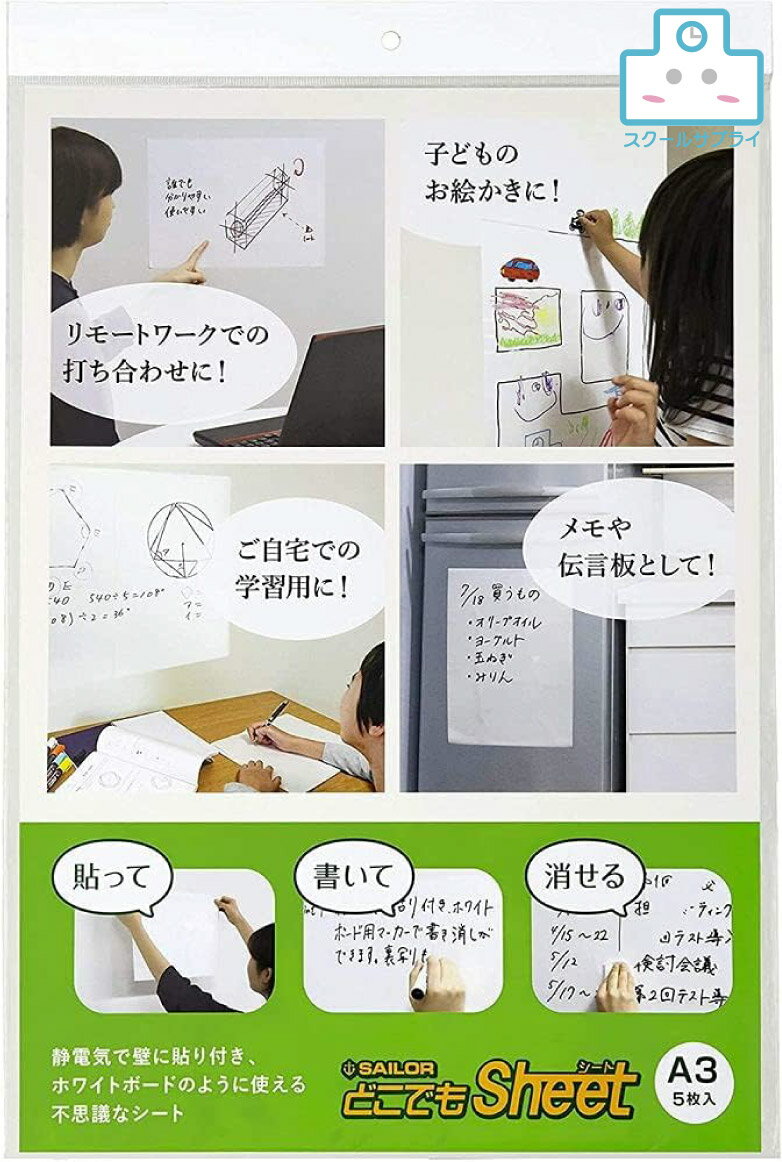 スクールサプライ
誰でも
分かりやすい
使いやすい
リモートワークでの
打ち合わせに!
子どもの
お絵かきに!
540÷5=108°
)÷2=36°
ご自宅での
学習用に!
メモや
伝言板として!
7/18 買うもの
・オリーブオイル
・ヨーグルト
・玉ねぎ
・みりん
貼って
書いて
消せる
り付き、ホワイト
ボード用マーカーで書き消しが
できます。裏
4/15〜22
回テスト
5/12
検討会議
5/17〜
第2回テスト
静電気で壁に貼り付き、
ホワイトボードのように使える
不思議なシート
SAILOR
どこでもSheet
シート
A3
5枚入